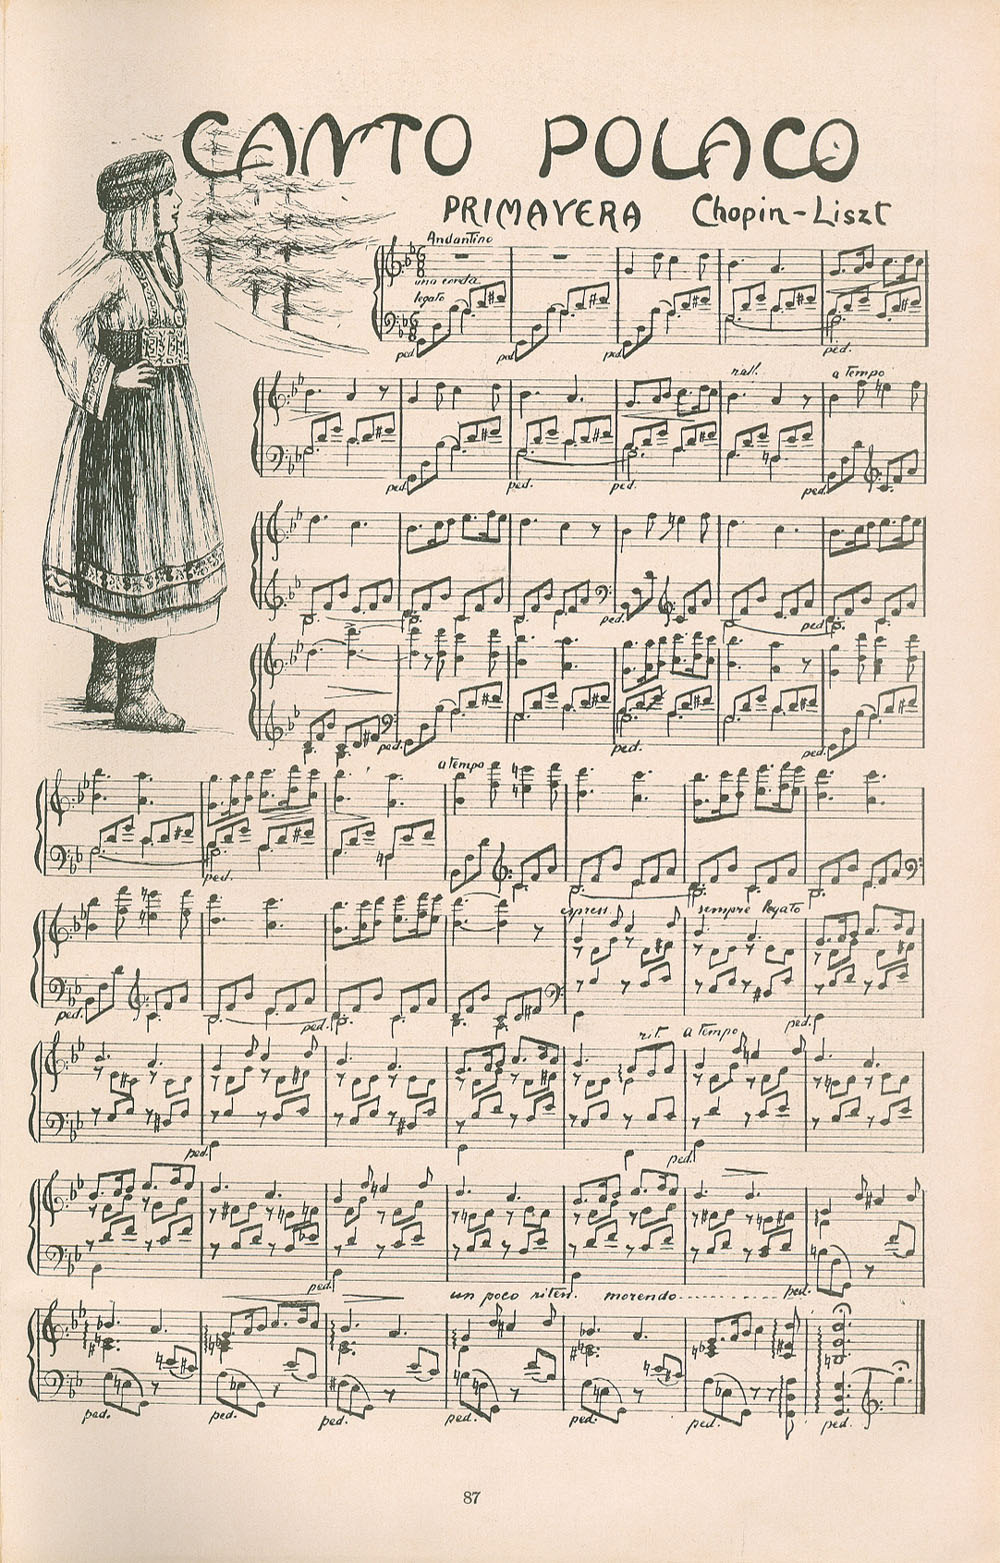 CANTO POLACO
PRIMAVERA Chopin-Liszt
Andantino
6 8
una corda
legato
6 8
ped. ped. ped. ped.
rall. a Tempo
ped. ped. ped. ped.
ped. ped.
ped. ped. ped.
a tempo
ped.
espress. sempre legato
ped. ped. ped.
rit. a Tempo
ped. ped.
ped. ped.
un poco riten. morendo
ped. ped. ped. ped. ped. ped. ped.
87